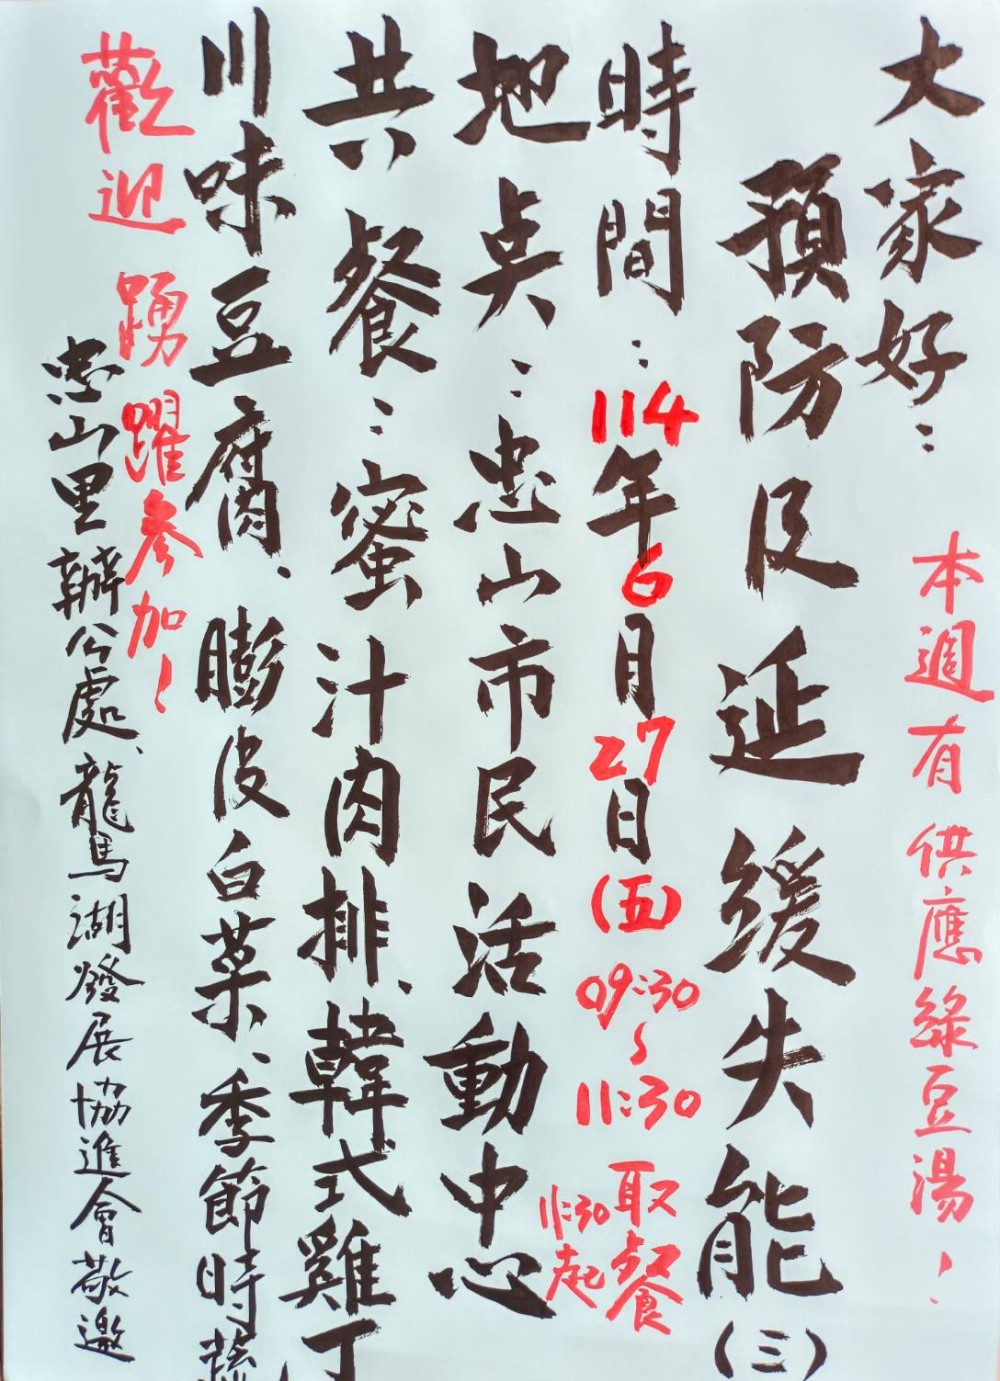 大家好：
本週有供應綠豆湯！
預防及延缓失能(三)
時間：114年6月27日(五)09:30~11:30
取餐
11:30起
地点：忠山市民活動中心
共餐：蜜汁肉排、韓式雞丁
川味豆腐、膨皮白菜、季節時蔬
歡迎踴躍参加！
忠山里辦公處、龍馬湖發展協進會敬邀